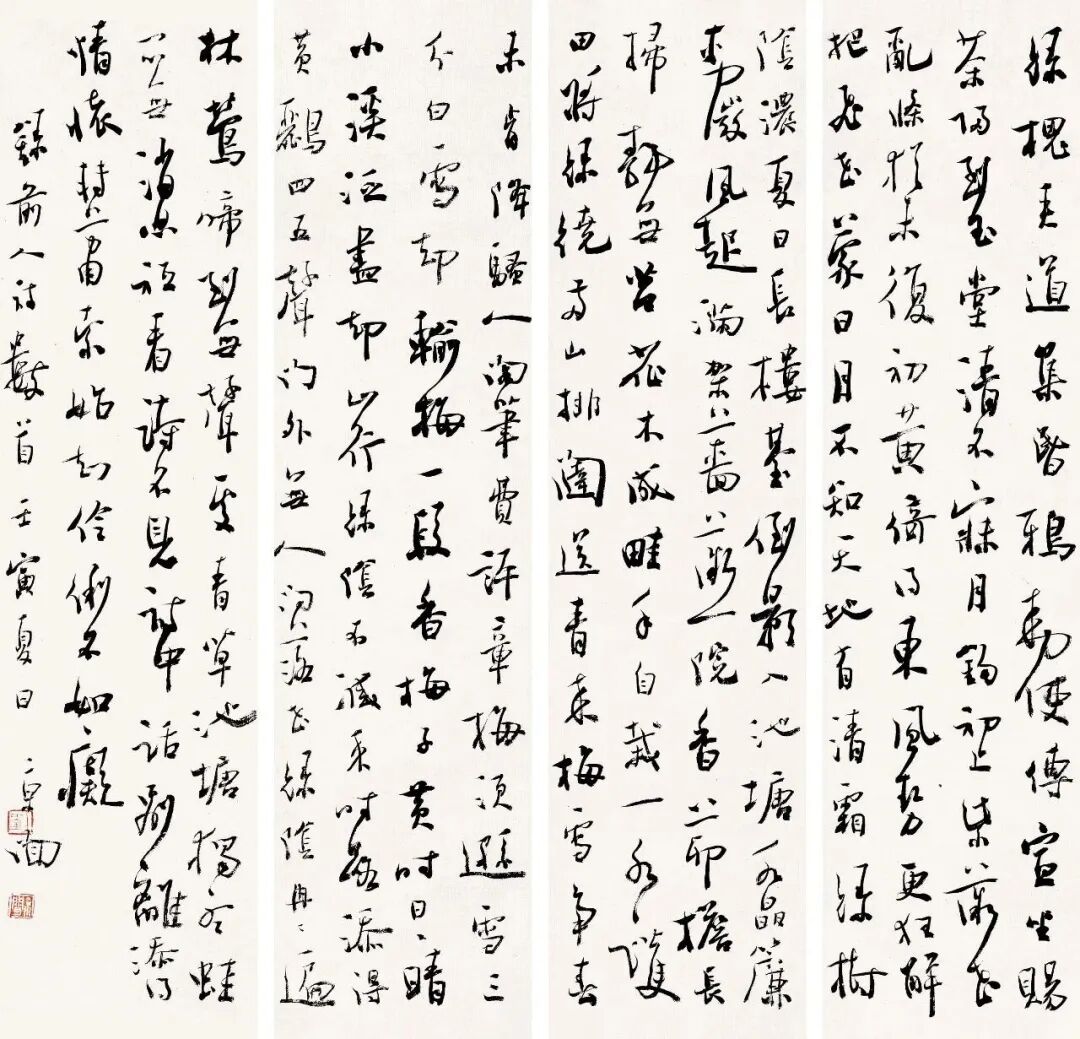 綠槐夾道集昏鴉勅使傳宣坐賜
茶歸到玉堂清不寐月鉤初上紫薇花
亂條猶未復初黃倚得東風勢更狂解
把飛花蒙日月不知天地有清霜綠樹
陰濃夏日長樓臺倒影入池塘水晶簾
動微風起滿架薔薇一院香茆檐長
掃靜無苔花木成畦手自栽一水護
田將綠繞兩山排闥送青來梅雪爭春
未肯降騷人閣筆費評章梅須遜雪三
分白雪却輸梅一段香梅子黃時日日晴
小溪泛盡却山行綠陰不減來時路添得
黃鸝四五聲門外無人問落花綠陰冉冉遍
林鶯啼到無聲處青草池塘獨聽蛙
無消遣祇看詩不見詩中話別離添得
情懷轉蕭索始知伶俐不如癡
錄前人詩數首壬寅夏日